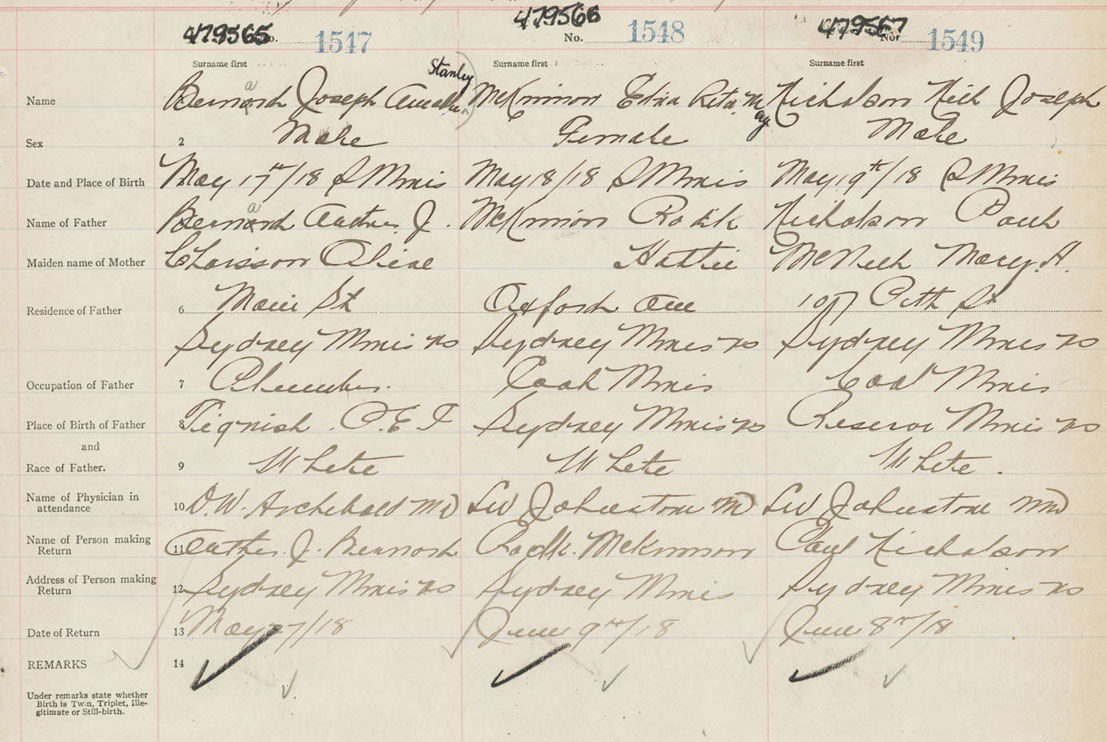 479565 No. 1547 479566 No. 1548 479567 No. 1549
Surname first Surname first Surname first
Name Joseph Stanley McKinnon Edna Rita May Nicholson Neil Joseph
Sex 2 Male Female Male
Date and Place of Birth May 17th/18 S Mines May 18/18 S Mines May 19th/18 S Mines
Name of Father J. McKinnon Nicholson Paul
Maiden name of Mother Chaisson Hattie McNeil Mary A.
Residence of Father 6 Main St Oxford Ave Pitt St
Sydney Mines NS Sydney Mines NS Sydney Mines NS
Occupation of Father 7 Plumber. Coal Mines Coal Mines
Place of Birth of Father 8 Tignish P.E.I Sydney Mines NS Reserve Mines NS
and
Race of Father. 9 White White White.
Name of Physician in
attendance 10 D.W. Archibald MD LW Johnstone MD LW Johnstone MD
Name of Person making
Return 11 J. McKinnon Paul Nicholson
Address of Person making
Return 12 Sydney Mines NS Sydney Mines Sydney Mines NS
Date of Return 13 May 27/18 June 9th/18 June 8th/18
REMARKS 14
Under remarks state whether
Birth is Twin, Triplet, Ille-
gitimate or Still-birth.